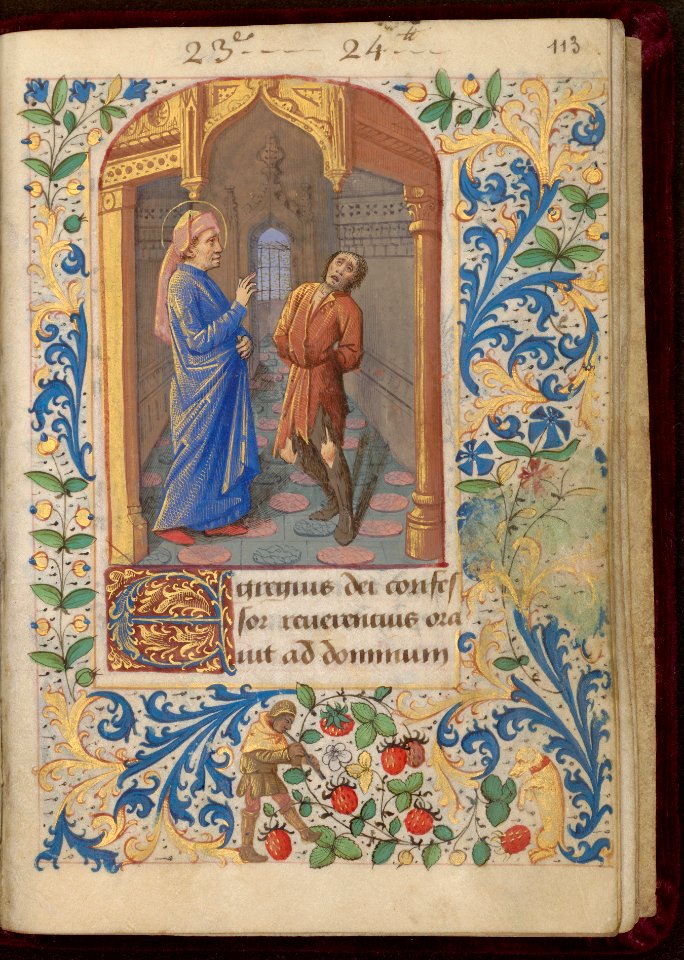 23e 24th
113
Egregius dei confes
sor reverencius ora
vit ad dominum